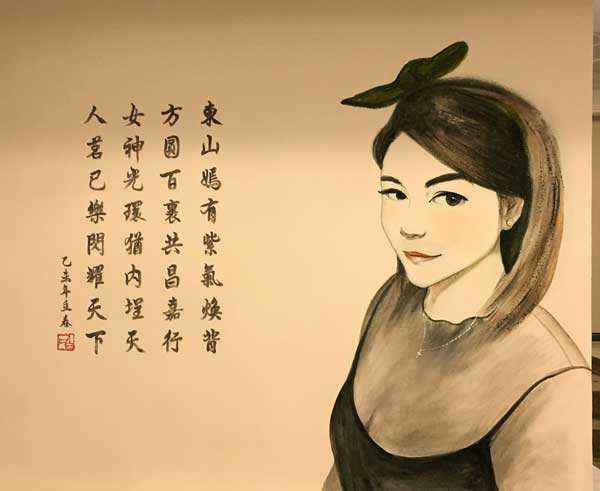 東山嫣有紫氣煥背
方圓百裏共昌嘉行
女神光環猶内埕天
人茗已樂閃耀天下
乙未年立春